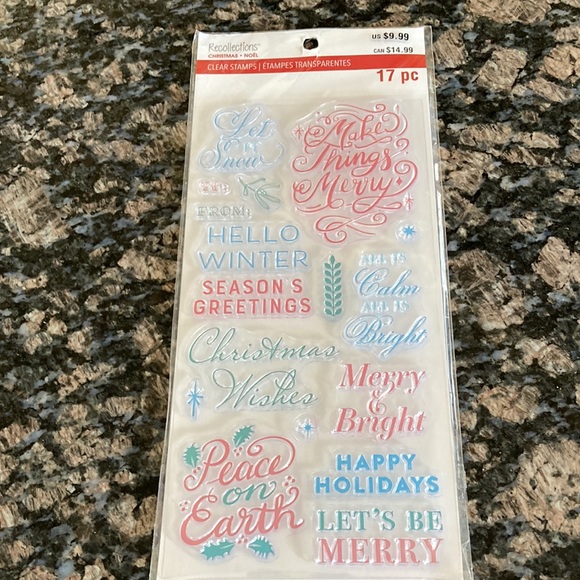 Recollections™
CHRISTMAS • NOËL
US $9.99
CAN $14.99
CLEAR STAMPS | ÉTAMPES TRANSPARENTES
17 pc
Let
it
Snow
Make
Things
Merry
TO:
FROM:
HELLO
WINTER
SEASON'S
GREETINGS
ALL IS
Calm
ALL IS
Bright
Christmas
Wishes
Merry
&
Bright
Peace
on
Earth
HAPPY
HOLIDAYS
LET'S BE
MERRY